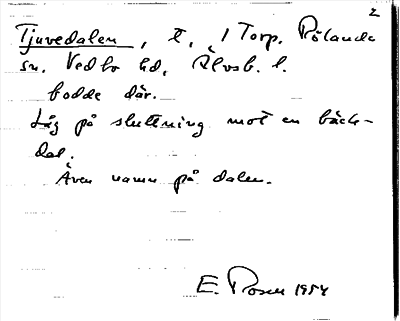 2
Tjuvedalen, t, / Torp. Rölanda
sn. Vedbo hd, Älvsb. l.
bodde där.
Låg på sluttning mot en bäck-
dal.
Även namn på dalen.
E. Rosen 1954